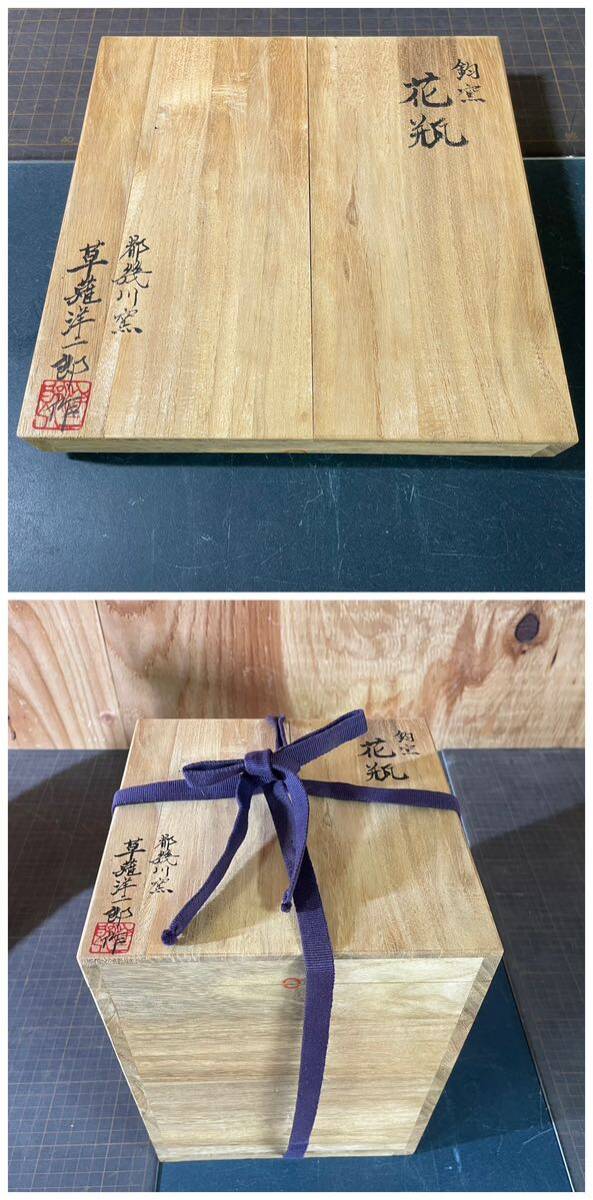 鈞窯
花瓶
都幾川窯
草薙洋一郎
作
鈞窯
花瓶
都幾川窯
草薙洋一郎
作